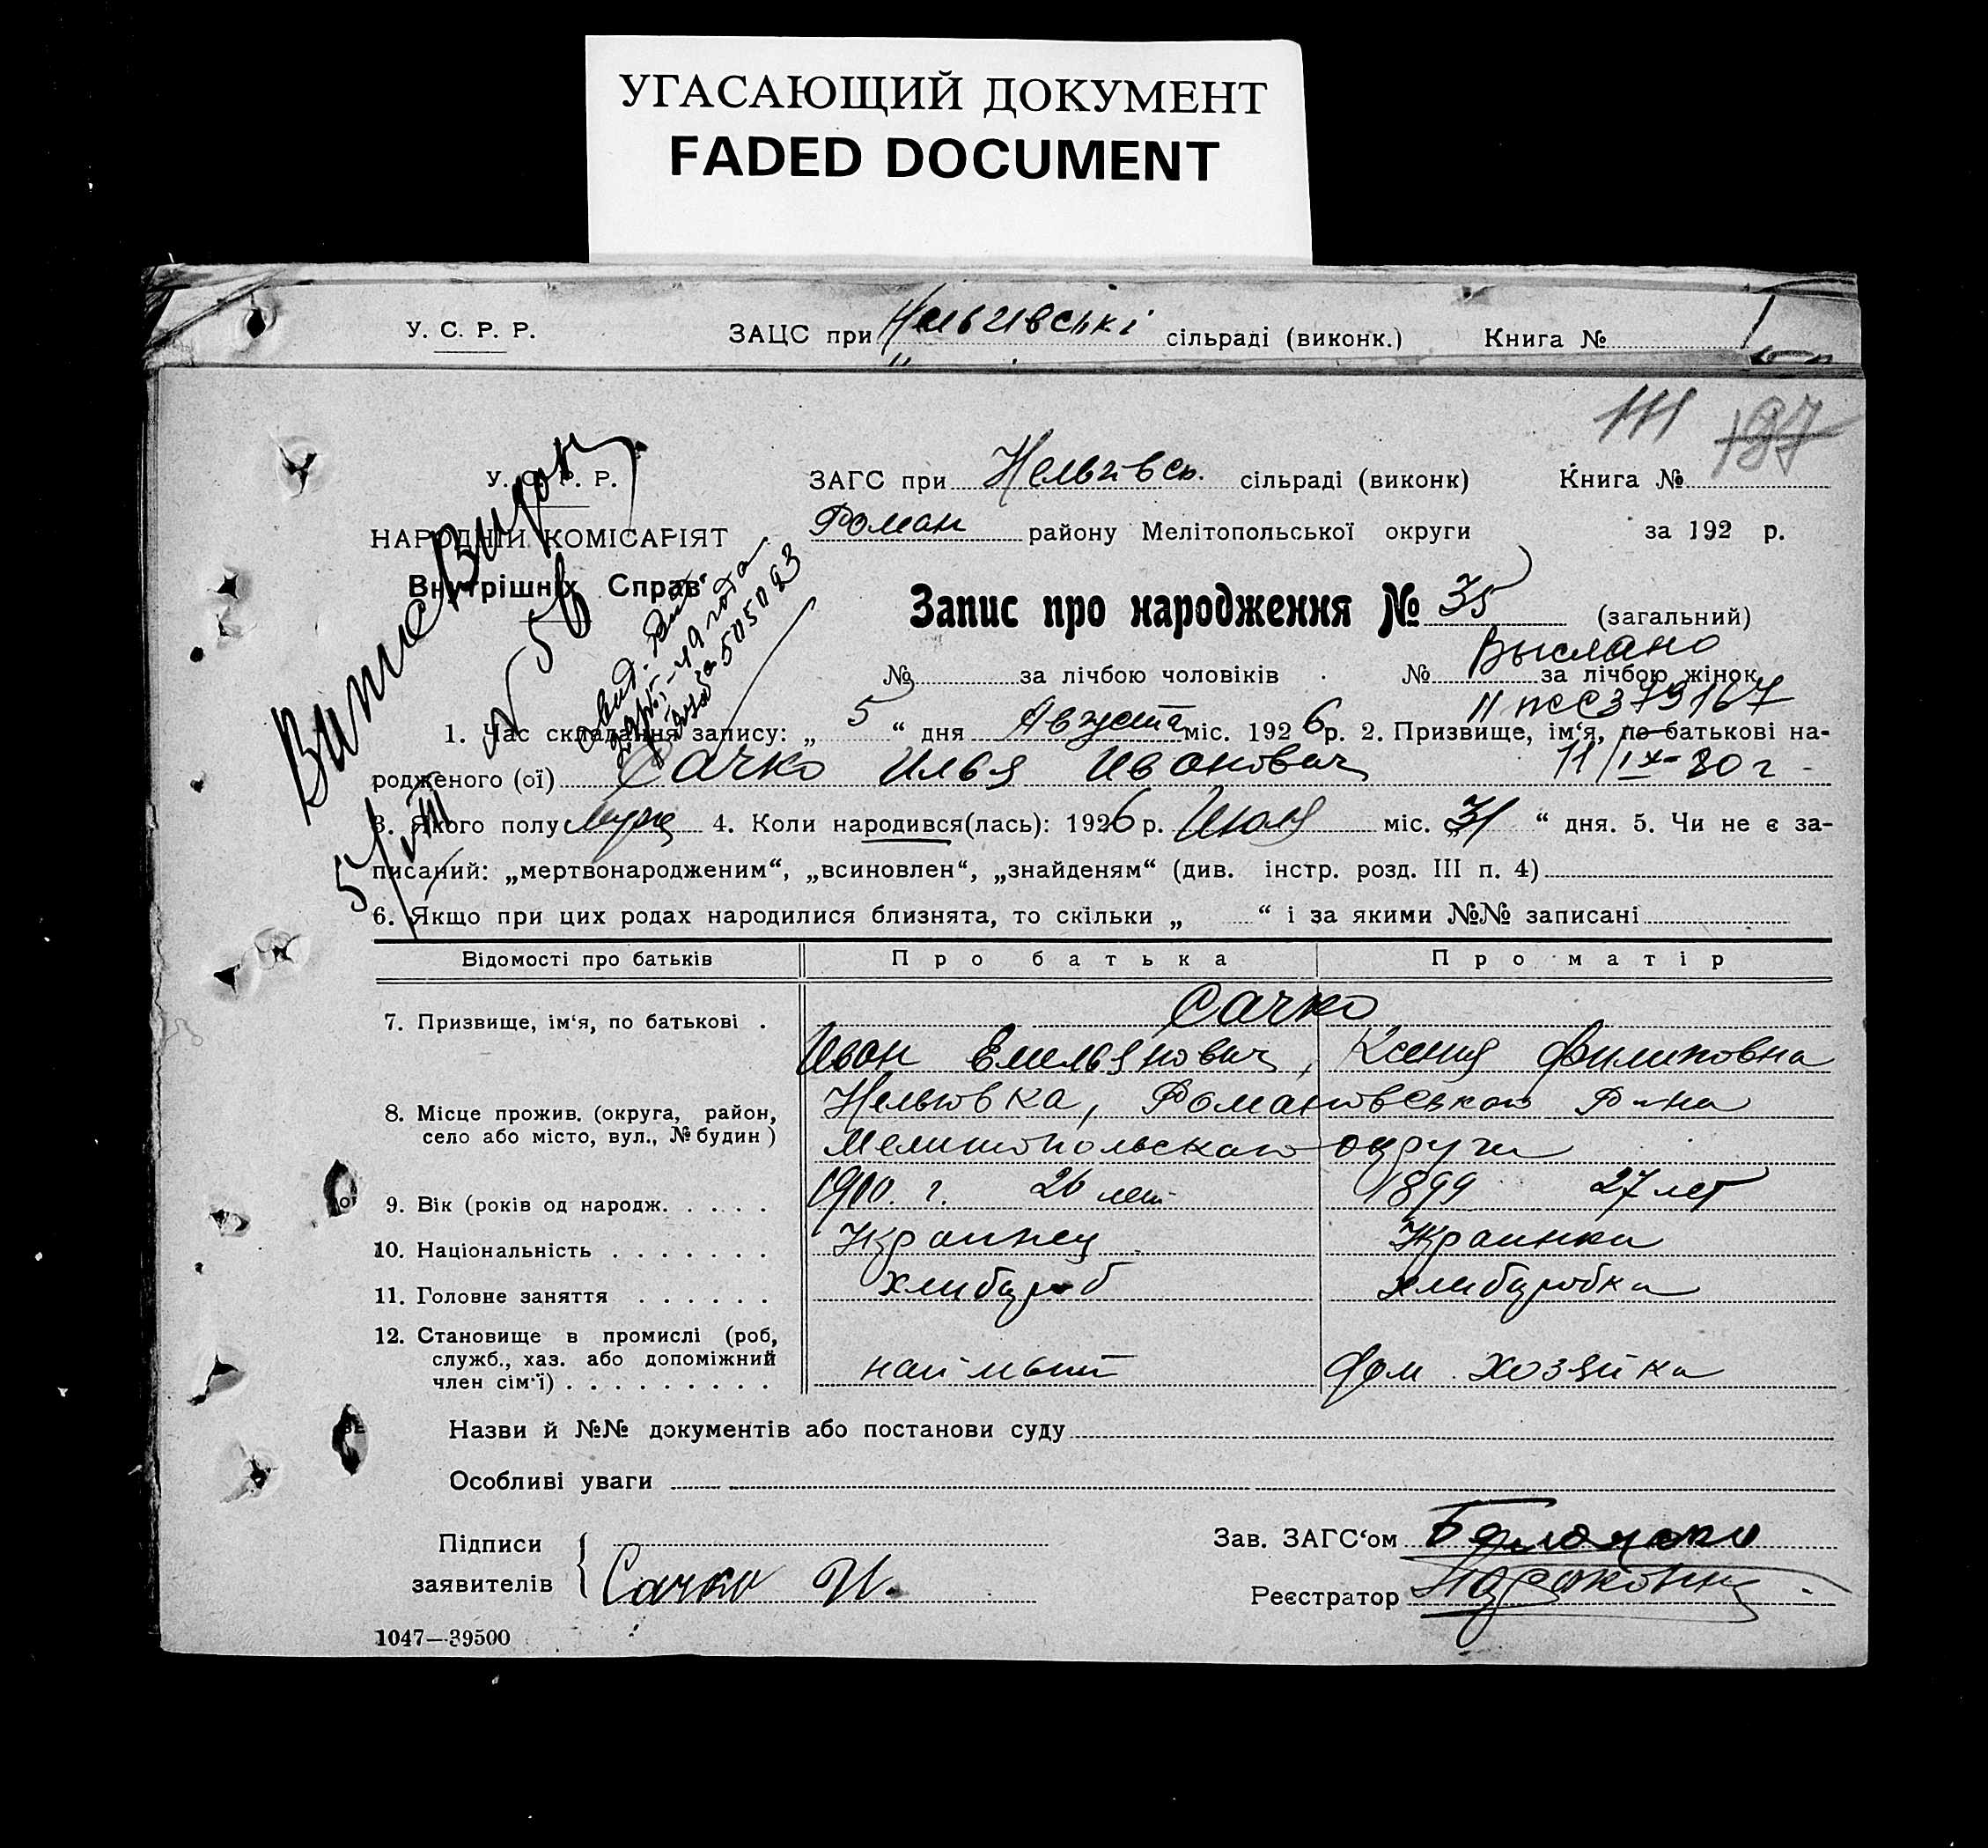 УГАСАЮЩИЙ ДОКУМЕНТ
FADED DOCUMENT
У. С. Р. Р. ЗАЦС при сільраді (виконк.) Книга №
111 197
У. С. Р. Р. ЗАГС при Нельгівсь. сільраді (виконк) Книга №
НАРОДНІЙ КОМІСАРІЯТ Роман району Мелітопольської округи за 192 р.
Внутрішніх Справ
Запис про народження № 35 (загальний)
№ за лічбою чоловіків № за лічбою жінок
Выслано
II 379167
11/IX-80 г
№ 56
5/VIII
1. Час складання запису: „ 5 “ дня Августа міс. 1926 р. 2. Призвище, ім‘я, по батькові на-
родженого (ої) Сачко Илья Иванович
3. Якого полу муж 4. Коли народився(лась): 1926 р. Июля міс. „31 “ дня. 5. Чи не є за-
писаний: „мертвонародженим“, „всиновлен“, „знайденям“ (див. інстр. розд. III п. 4)
6. Якщо при цих родах народилися близнята, то скільки „ “ і за якими №№ записані
Відомості про батьків Про батька Про матір
7. Призвище, ім‘я, по батькові . Сачко
Иван Емельянович, Ксения Филиповна
8. Місце прожив. (округа, район, село або місто, вул., № будин)
Мелитопольскаго округи
9. Вік (років од народж. . . . . 1900. г. 26 лет 1899 27 лет
10. Національність . . . . . . . Украинец Украинка
11. Головне заняття . . . . . . хлибуроб хлибуробка
12. Становище в промислі (роб,
служб., хаз. або допоміжний
член сім‘ї) . . . . . . . . . наймыт дом. хозяйка
Назви й №№ документів або постанови суду
Особливі уваги
Підписи
заявителів Сачко И.
Зав. ЗАГС‘ом
Реєстратор
1047—39500